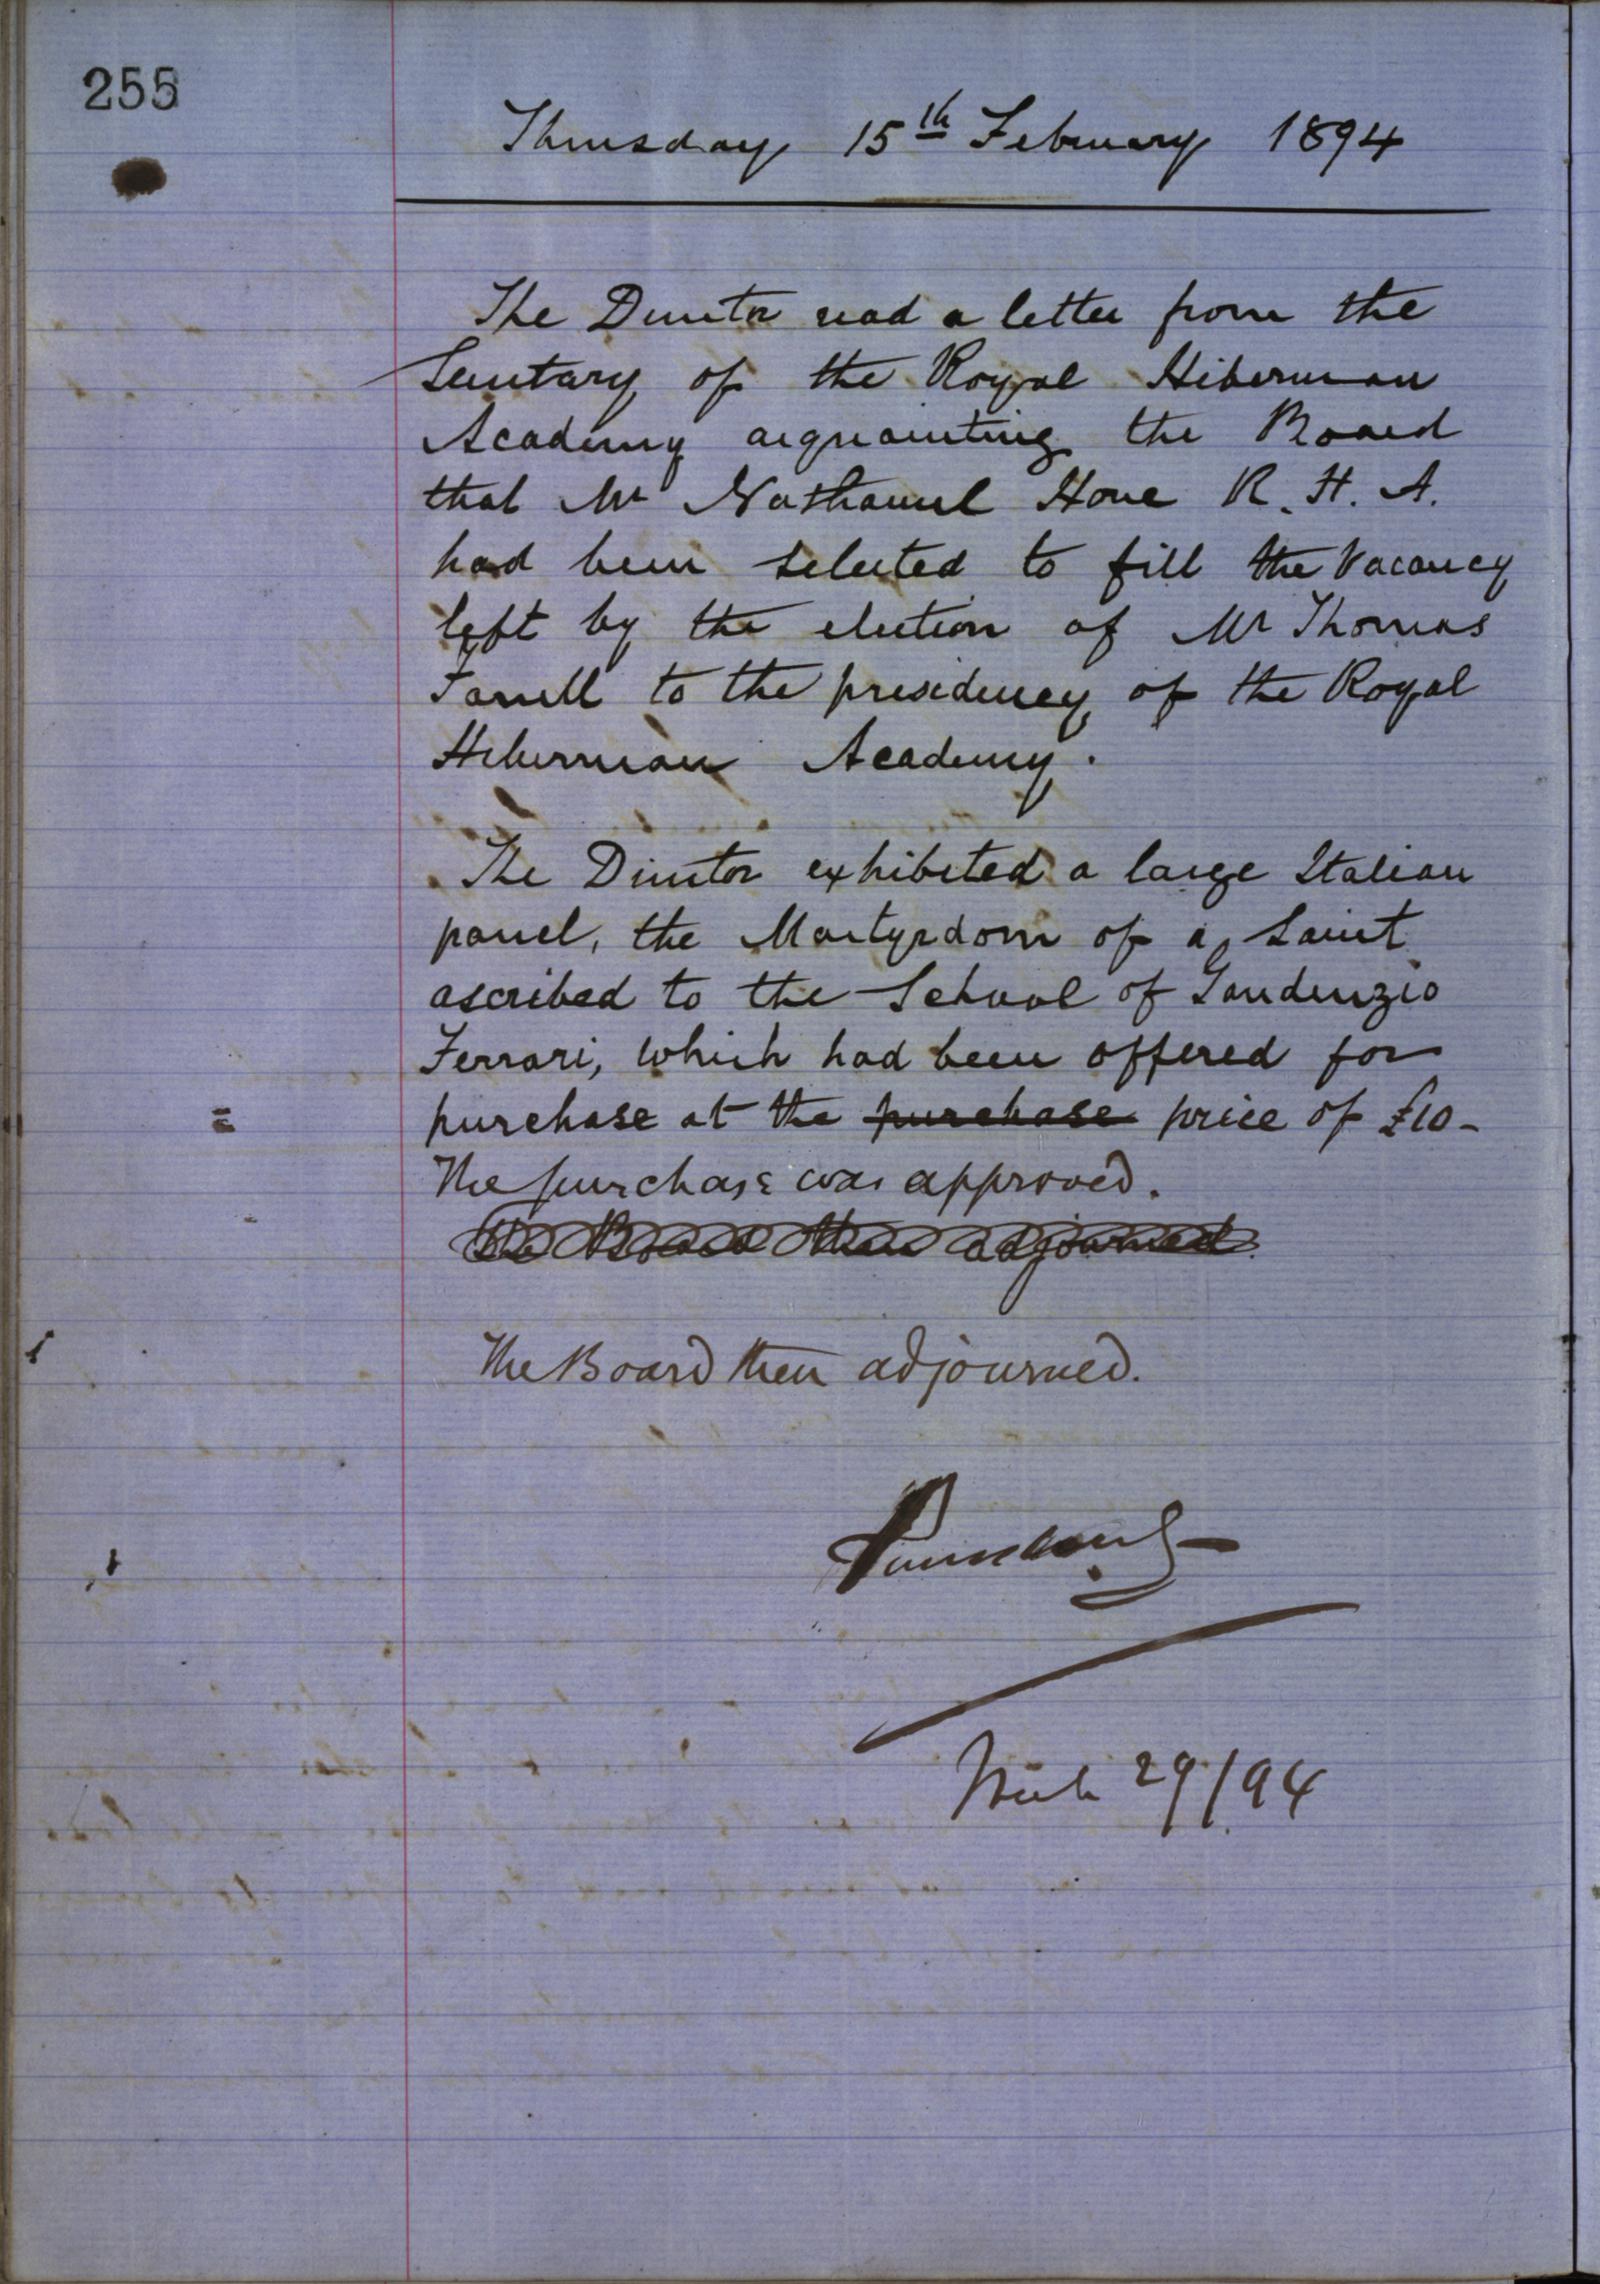 255
Thursday 15th February 1894
The Director read a letter from the
Secretary of the Royal Hibernian
Academy acquainting the Board
that Mr Nathaniel Hone R. H. A.
had been selected to fill the vacancy
left by the election of Mr Thomas
Farrell to the presidency of the Royal
Hibernian Academy.
The Director exhibited a large Italian
panel, the Martyrdom of a Saint
ascribed to the School of Gaudenzio
Ferrari, which had been offered for
purchase at the purchase price of £10-
The purchase was approved.
The Board then adjourned.
The Board then adjourned.
29/94